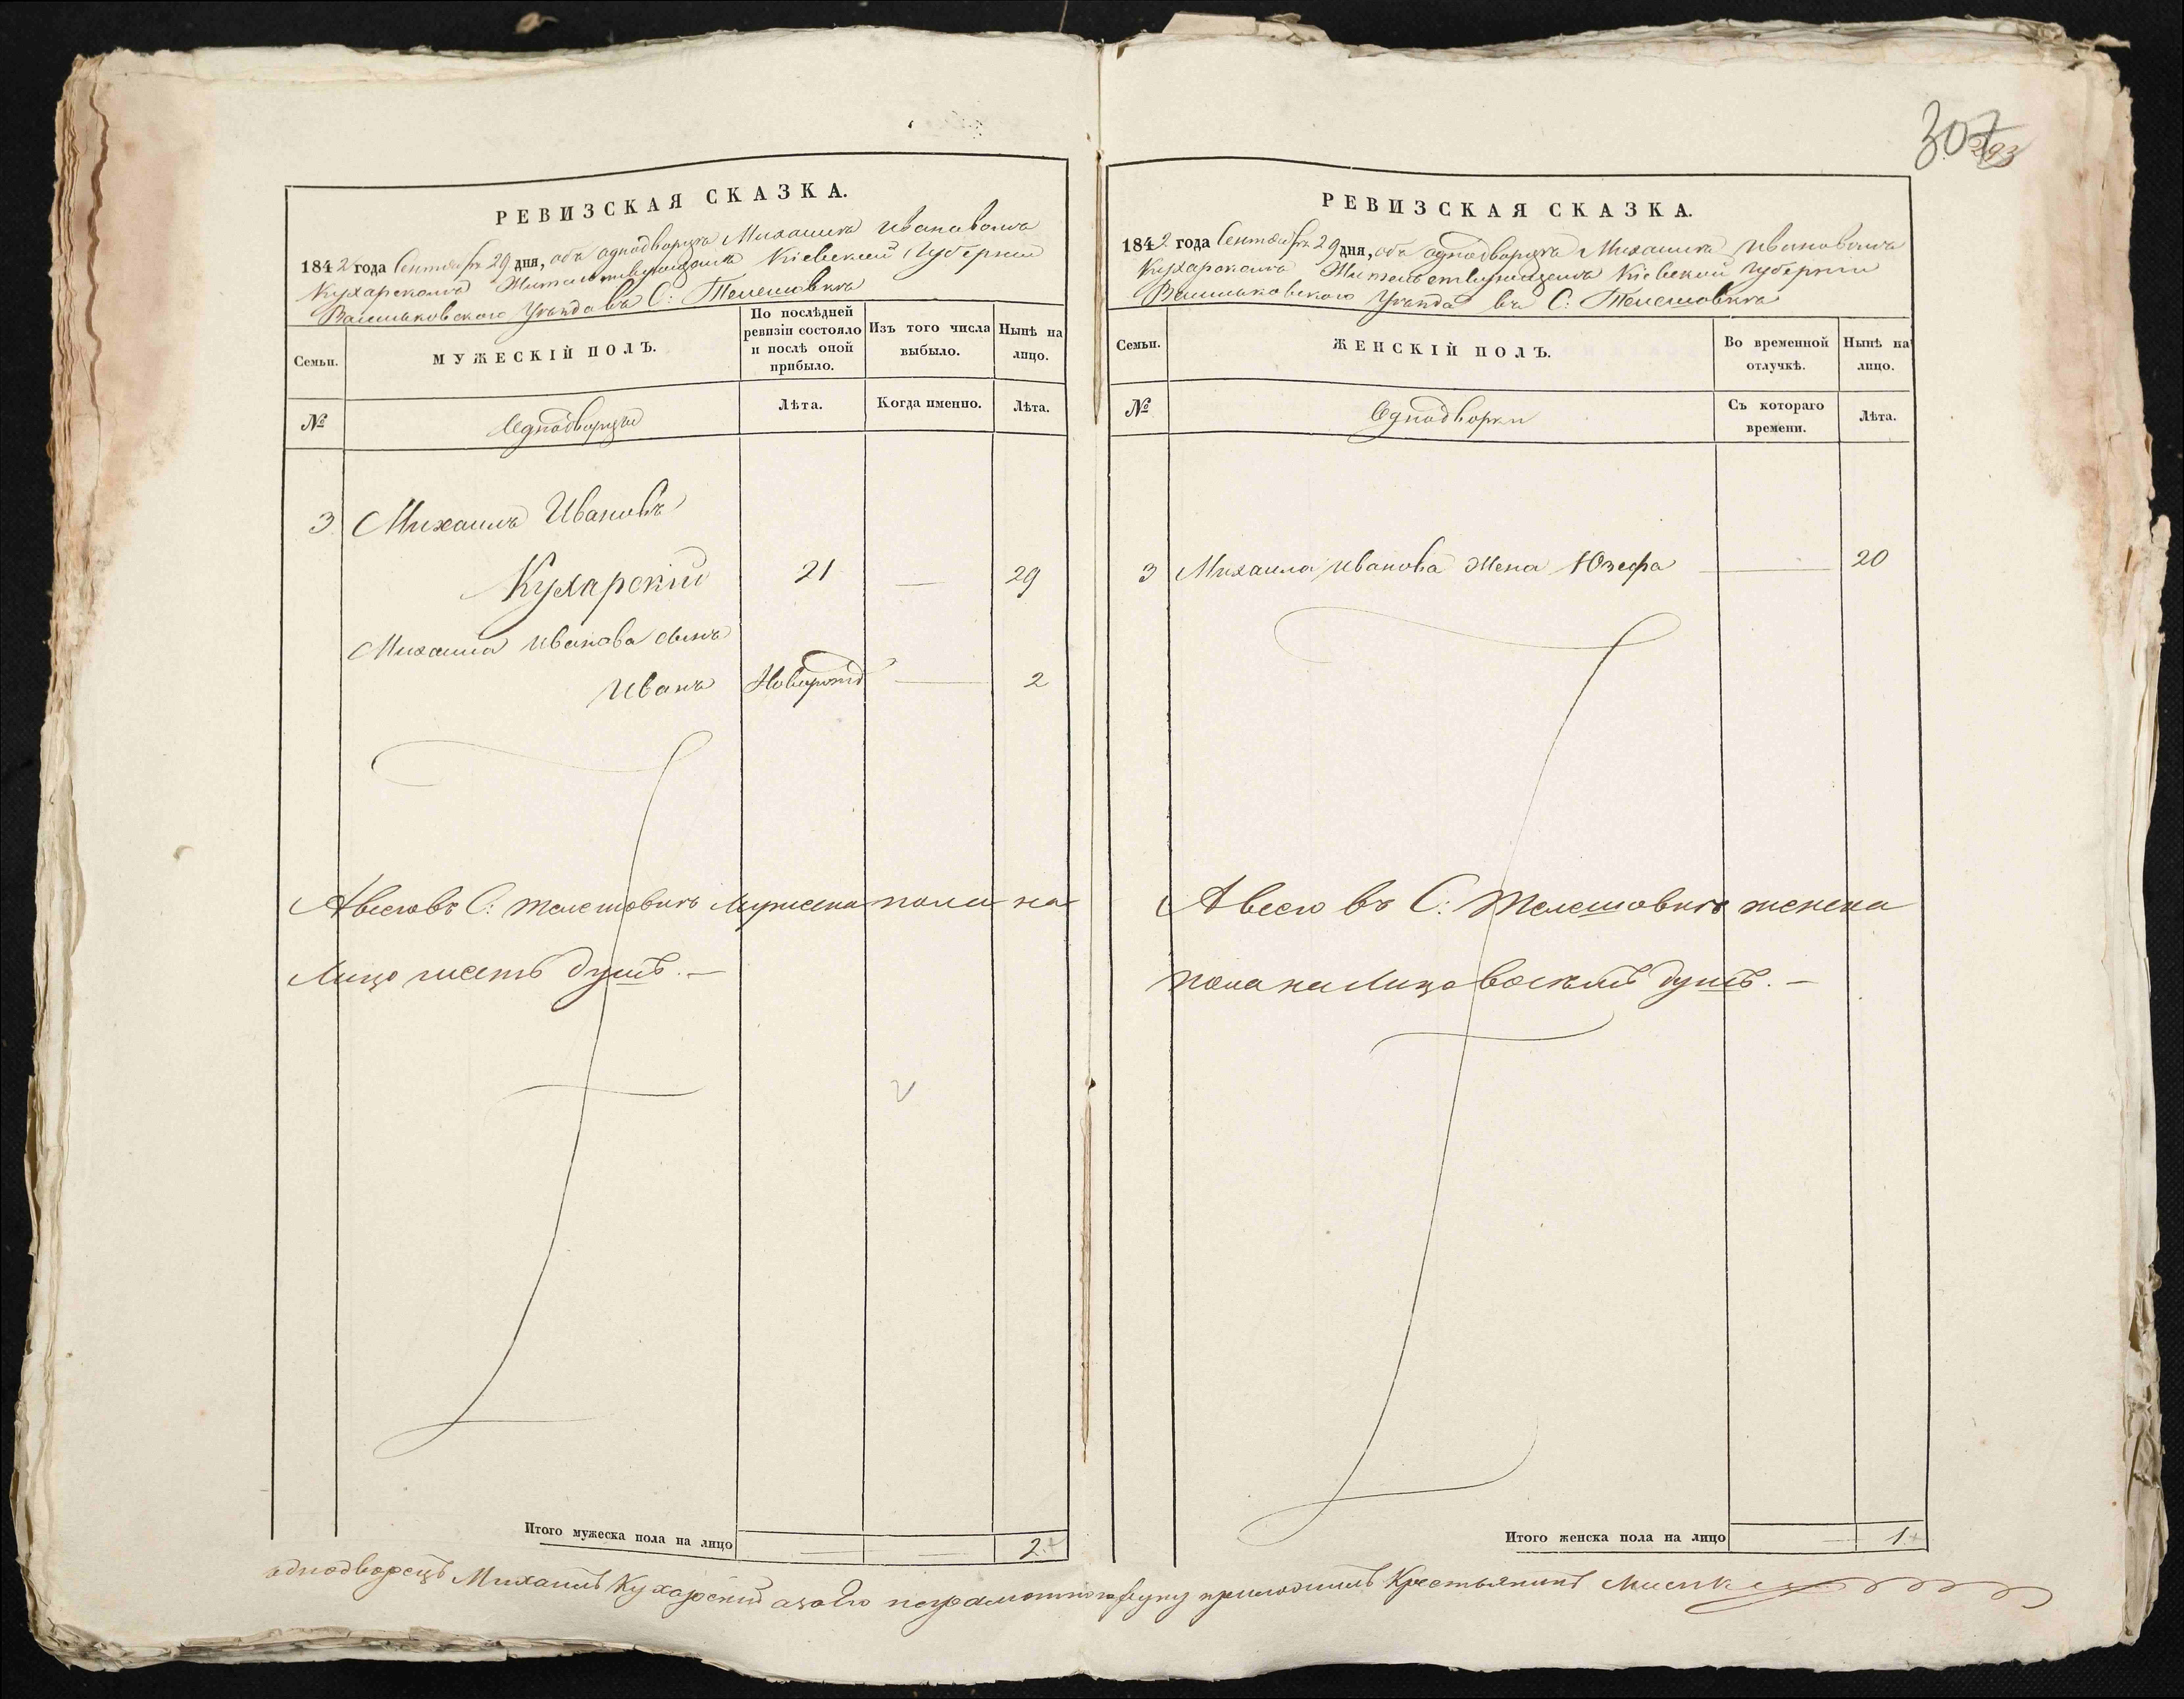 307
293
РЕВИЗСКАЯ СКАЗКА.
1842 года Сентября 29 дня, объ однодворцѣ Михаилѣ Ивановомъ
Кухарскомъ Жительствующемъ Кіевской Губерніи
Васильковскаго Уѣзда въ С: Телешовкѣ
Семьи.
МУЖЕСКІЙ ПОЛЪ.
По послѣдней
ревизіи состояло
и послѣ оной
прибыло.
Изъ того числа
выбыло.
Нынѣ на
лицо.
№
Однодворцы
Лѣта.
Когда именно.
Лѣта.
3 Михаилъ Ивановъ
Кухарскій 21 — 29
Михаила Иванова сынъ
Иванъ Новорожд — 2
А всего въ С: Телешовкѣ мужеска пола на
лицо шесть душъ. —
Итого мужеска пола на лицо — — 2.
РЕВИЗСКАЯ СКАЗКА.
1842 года Сентября 29 дня, объ однодворцѣ Михаилѣ Ивановомъ
Кухарскомъ Жительствующемъ Кіевской Губерніи
Васильковского Уѣзда въ С: Телешовкѣ
Семьи.
ЖЕНСКІЙ ПОЛЪ.
Во временной
отлучкѣ.
Нынѣ на
лицо.
№
Однодворки
Съ котораго
времени.
Лѣта.
3 Михаила Иванова жена Юзефа — 20
А всего въ С: Телешовкѣ женска
пола на лицо восемь душъ. —
Итого женска пола на лицо — 1.
однодворецъ Михаилъ Кухарскій а за его неграмотного руку приложилъ Крестьянинъ